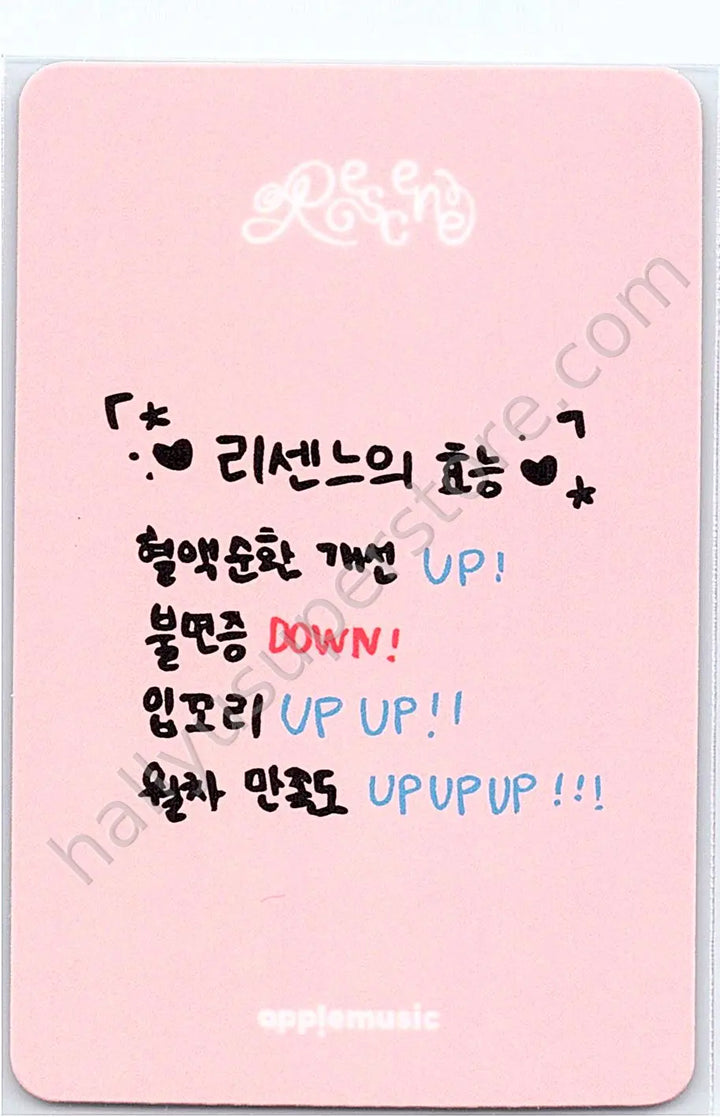 Rescene
「*♥ 리센느의 효능 ♥*」
혈액순환 개선 UP!
불면증 DOWN!
입꼬리 UP UP!!
월차 만족도 UP UP UP !!!
applemusic
hallyusuperstore.com